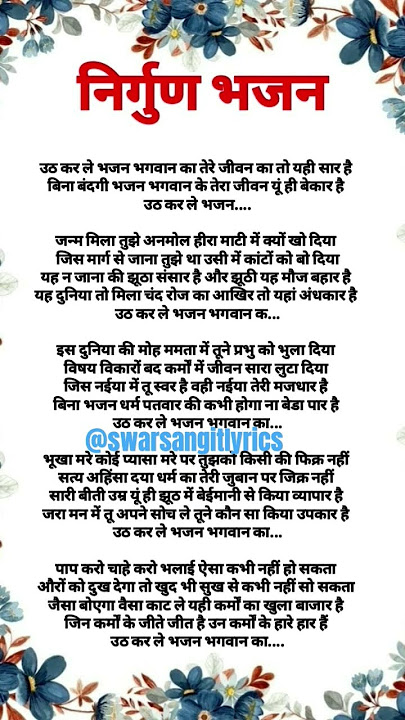 निर्गुण भजन
उठ कर ले भजन भगवान का तेरे जीवन का तो यही सार है
बिना बंदगी भजन भगवान के तेरा जीवन यूं ही बेकार है
उठ कर ले भजन....
जन्म मिला तुझे अनमोल हीरा माटी में क्यों खो दिया
जिस मार्ग से जाना तुझे था उसी में कांटों को बो दिया
यह न जाना की झूठा संसार है और झूठी यह मौज बहार है
यह दुनिया तो मिला चंद रोज का आखिर तो यहां अंधकार है
उठ कर ले भजन भगवान क...
इस दुनिया की मोह ममता में तूने प्रभु को भुला दिया
विषय विकारों बद कर्मों में जीवन सारा लुटा दिया
जिस नईया में तू स्वर है वही नईया तेरी मजधार है
बिना भजन धर्म पतवार की कभी होगा ना बेडा पार है
उठ कर ले भजन भगवान का...
@swarsangitlyrics
भूखा मरे कोई प्यासा मरे पर तुझको किसी की फिक्र नहीं
सत्य अहिंसा दया धर्म का तेरी जुबान पर जिक्र नहीं
सारी बीती उम्र यूं ही झूठ में बेईमानी से किया व्यापार है
जरा मन में तू अपने सोच ले तूने कौन सा किया उपकार है
उठ कर ले भजन भगवान का...
पाप करो चाहे करो भलाई ऐसा कभी नहीं हो सकता
औरों को दुख देगा तो खुद भी सुख से कभी नहीं सो सकता
जैसा बोएगा वैसा काट ले यही कर्मों का खुला बाजार है
जिन कर्मों के जीते जीत है उन कर्मों के हारे हार हैं
उठ कर ले भजन भगवान का....